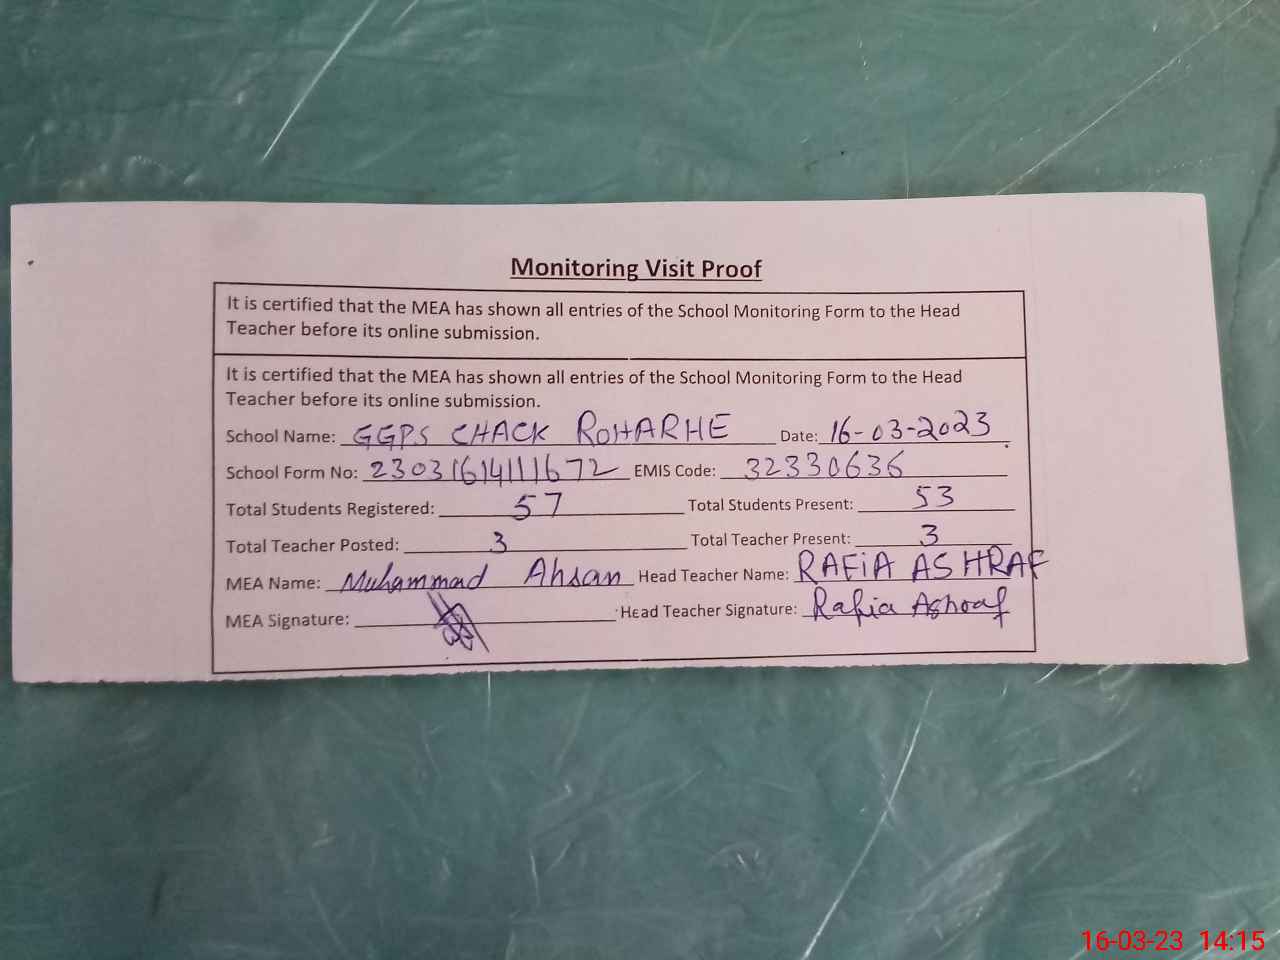 Monitoring Visit Proof
It is certified that the MEA has shown all entries of the School Monitoring Form to the Head
Teacher before its online submission.
It is certified that the MEA has shown all entries of the School Monitoring Form to the Head
Teacher before its online submission.
School Name: GGPS CHACK ROHARHE Date: 16-03-2023
School Form No: 23031614111672 EMIS Code: 32330636
Total Students Registered: 57 Total Students Present: 53
Total Teacher Posted: 3 Total Teacher Present: 3
MEA Name: Muhammad Ahsan Head Teacher Name: RAFiA ASHRAF
MEA Signature: Head Teacher Signature: Rafia Ashraf
16-03-23 14:15